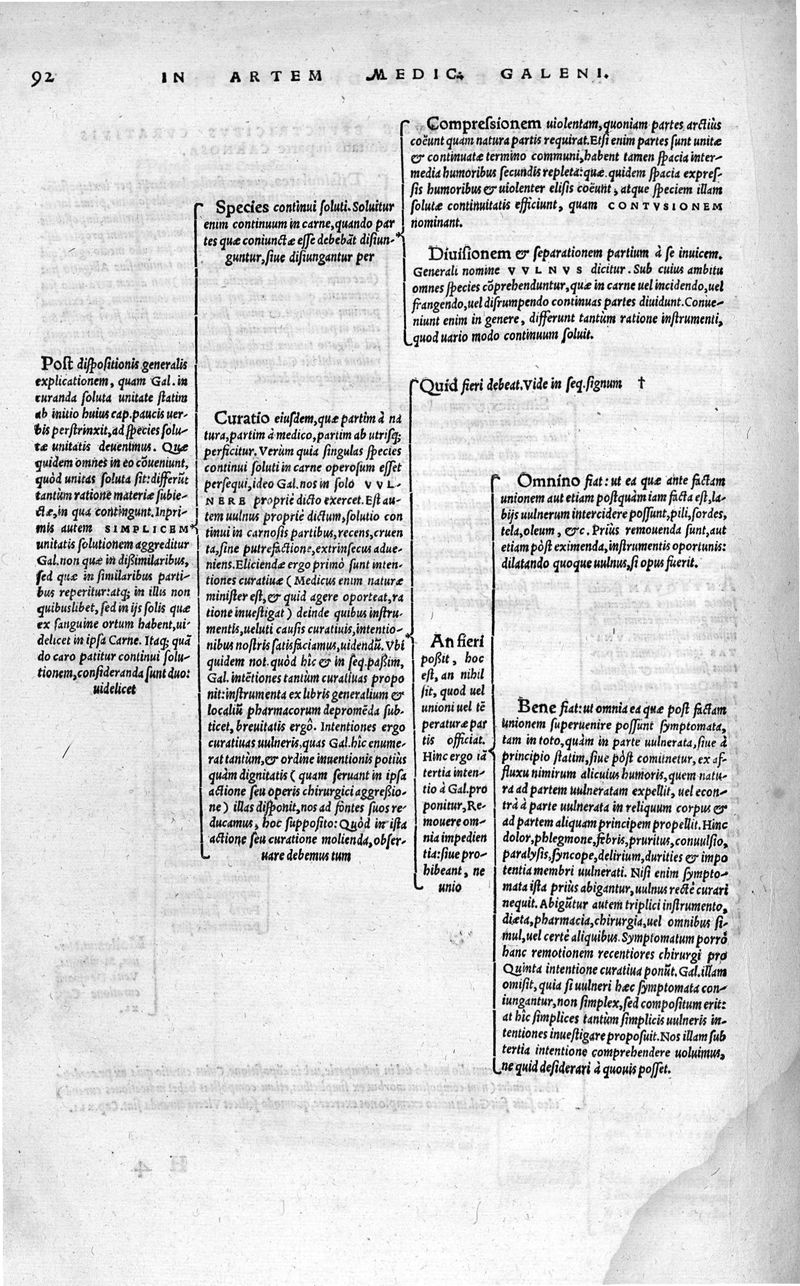 92 IN ARTEM MEDIC. GALENI.
Post dispositionis generalis
explicationem, quam Gal. in
curanda soluta unitate statim
ab initio huius cap. paucis uer-
bis perstrinxit, ad species solu-
tæ unitatis deuenimus. Quæ
quidem omnes in eo cōueniunt,
quòd unitas soluta sit: differūt
tantùm ratione materiæ subie-
ctæ, in qua contingunt. Inpri-
mis autem SIMPLICEM
unitatis solutionem aggreditur
Gal. non quæ in dissimilaribus,
sed quæ in similaribus parti-
bus reperitur: atq; in illis non
quibuslibet, sed in ijs solis quæ
ex sanguine ortum habent, ui-
delicet in ipsa Carne. Itaq; quā
do caro patitur continui solu-
tionem, consideranda sunt duo:
uidelicet
Species continui soluti. Soluitur
enim continuum in carne, quando par
tes quæ coniunctæ esse debebāt disiun-
guntur, siue disiungantur per
Compressionem uiolentam, quoniam partes arctiùs
coëunt quàm natura partis requirat. Etsi enim partes sunt unitæ
& continuatæ termino communi, habent tamen spacia inter-
media humoribus secundis repleta: quæ quidem spacia expres-
sis humoribus & uiolenter elisis coëunt, atque speciem illam
solutæ continuitatis efficiunt, quam CONTVSIONEM
nominant.
Diuisionem & separationem partium à se inuicem.
Generali nomine VVLNVS dicitur. Sub cuius ambitu
omnes species cōprehenduntur, quæ in carne uel incidendo, uel
frangendo, uel disrumpendo continuas partes diuidunt. Conue-
niunt enim in genere, differunt tantùm ratione instrumenti,
quod uario modo continuum soluit.
Curatio eiusdem, quæ partim à na
tura, partim à medico, partim ab utrisq;
perficitur. Verùm quia singulas species
continui soluti in carne operosum esset
persequi, ideo Gal. nos in solo VVL-
NERE propriè dicto exercet. Est au-
tem uulnus propriè dictum, solutio con
tinui in carnosis partibus, recens, cruen
ta, sine putrefactione, extrinsecus adue-
niens. Eliciendæ ergo primò sunt inten-
tiones curatiuæ (Medicus enim naturæ
minister est, & quid agere oporteat, ra
tione inuestigat) deinde quibus instru-
mentis, ueluti causis curatiuis, intentio-
nibus nostris satisfaciamus, uidendū. Vbi
quidem not. quòd hîc & in seq. passim,
Gal. intētiones tantùm curatiuas propo
nit: instrumenta ex libris generalium &
localiū pharmacorum depromēda sub-
ticet, breuitatis ergô. Intentiones ergo
curatiuas uulneris, quas Gal. hîc enume-
rat tantùm, & ordine inuentionis potiùs
quàm dignitatis (quam seruant in ipsa
actione seu operis chirurgici aggressio-
ne) illas disponit, nos ad fontes suos re-
ducamus, hoc supposito: Quòd in ista
actione seu curatione molienda, obser-
uare debemus tum
Quid fieri debeat. Vide in seq. signum †
An fieri
possit, hoc
est, an nihil
sit, quod uel
unioni uel tē
peraturæ par
tis officiat.
Hinc ergo iā
tertia inten-
tio à Gal. pro
ponitur, Re-
mouere om-
nia impedien
tia: siue pro-
hibeant, ne
unio
Omnino fiat: ut ea quæ ante factam
unionem aut etiam postquàm iam facta est, la-
bijs uulnerum intercidere possunt, pili, sordes,
tela, oleum, &c. Priùs remouenda sunt, aut
etiam pòst eximenda, instrumentis oportunis:
dilatando quoque uulnus, si opus fuerit.
Bene fiat: ut omnia ea quæ post factam
unionem superuenire possunt symptomata,
tam in toto, quàm in parte uulnerata, siue à
principio statim, siue pòst comitetur, ex af-
fluxu nimirum alicuius humoris, quem natu-
ra ad partem uulneratam expellit, uel econ-
trà à parte uulnerata in reliquum corpus &
ad partem aliquam principem propellit. Hinc
dolor, phlegmone, febris, pruritus, conuulsio,
paralysis, syncope, delirium, durities & impo
tentia membri uulnerati. Nisi enim sympto-
mata ista priùs abigantur, uulnus rectè curari
nequit. Abigūtur autem triplici instrumento,
diæta, pharmacia, chirurgia, uel omnibus si-
mul, uel certè aliquibus. Symptomatum porrò
hanc remotionem recentiores chirurgi pro
Quinta intentione curatiua ponūt. Gal. illam
omisit, quia si uulneri hæc symptomata con-
iungantur, non simplex, sed compositum erit:
at hîc simplices tantùm simplicis uulneris in-
tentiones inuestigare proposuit. Nos illam sub
tertia intentione comprehendere uoluimus,
ne quid desiderari à quouis posset.